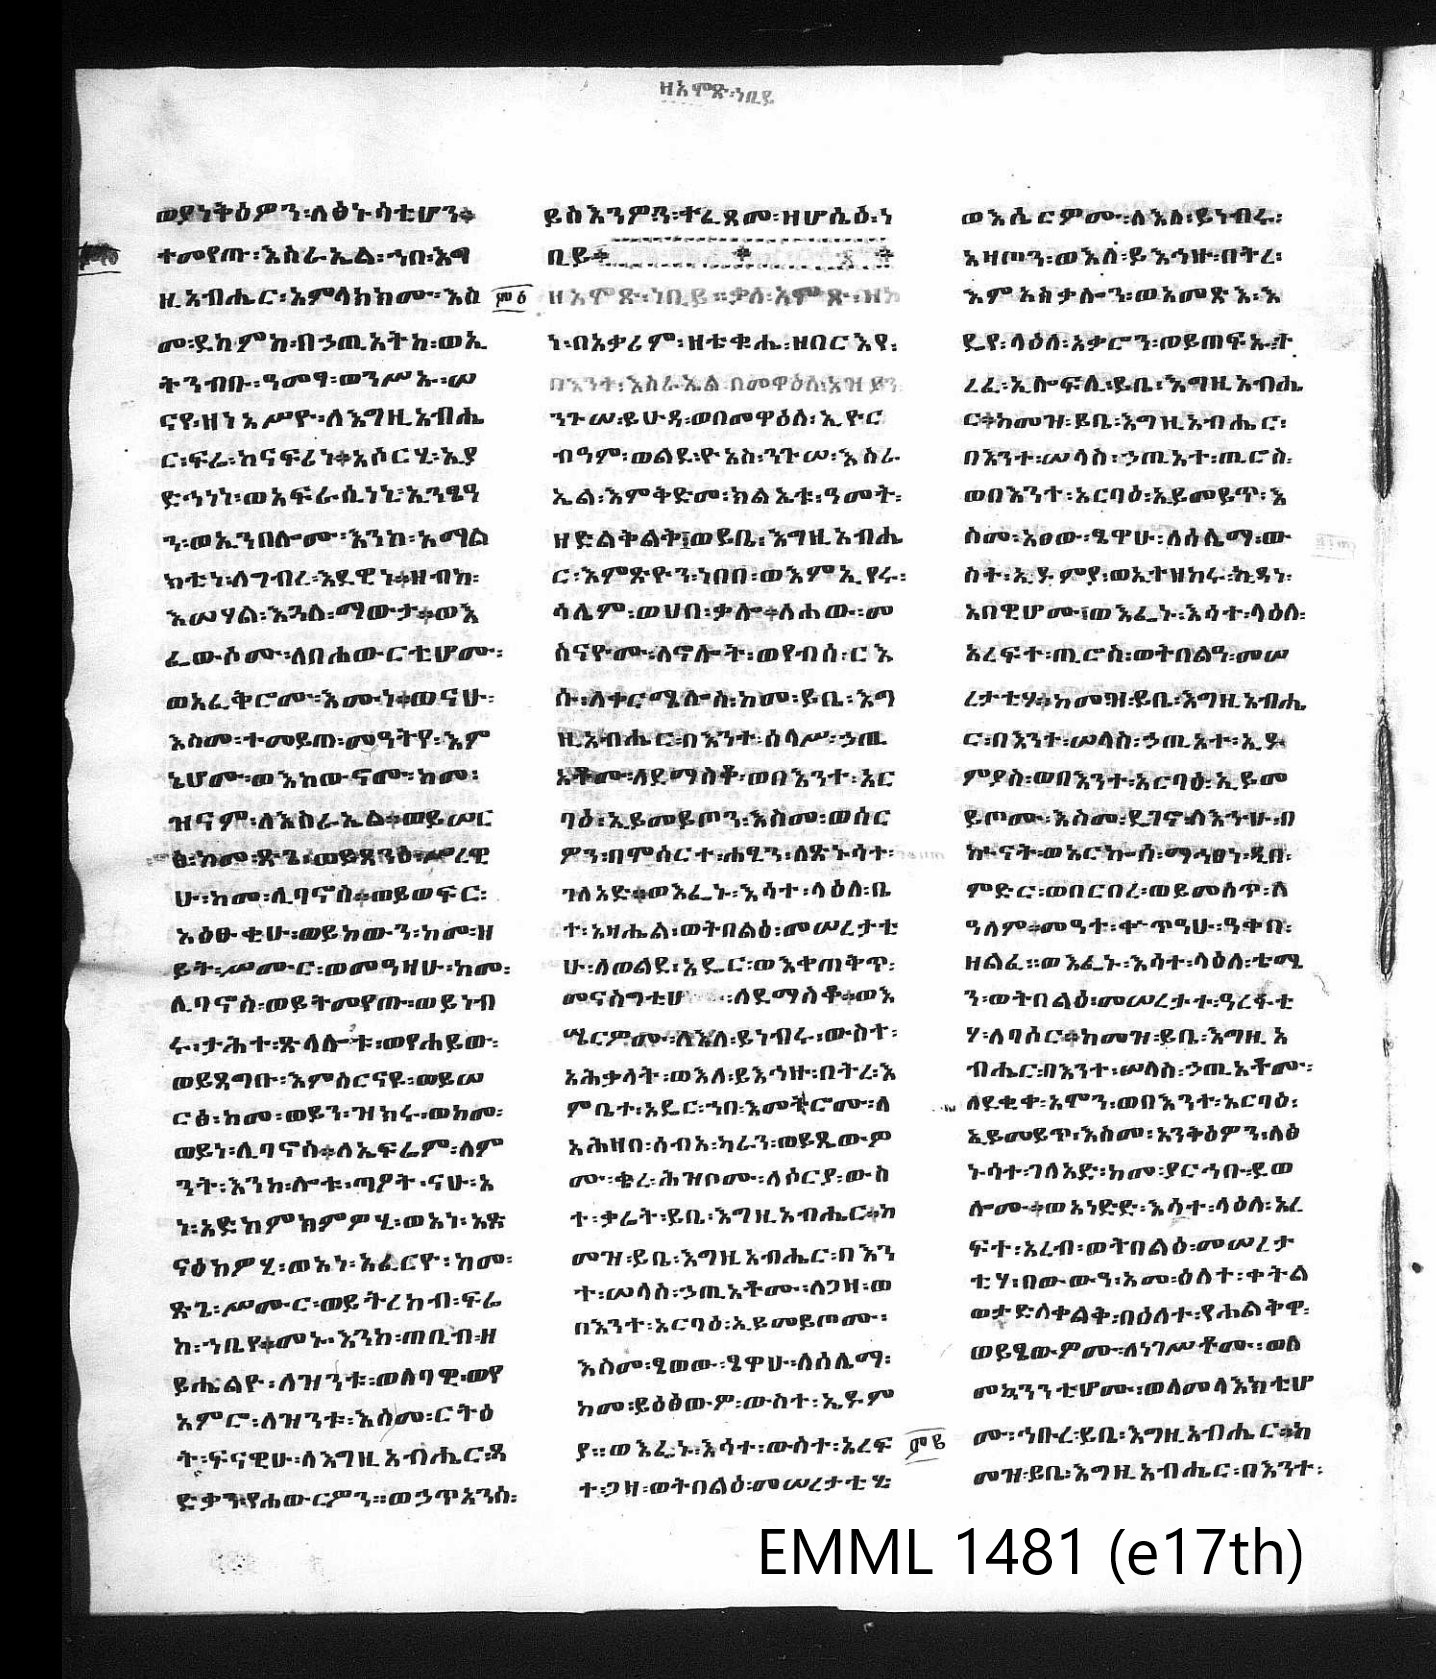 ዘአሞጽ፡ነቢይ
ወያነቅዕዎን፡ለፅኑሳቲሆን፨
ተመየጡ፡እስራኤል፡ኀበ፡እግ
ዚአብሔር፡አምላክክሙ፡እስ
መ፡ደከምከ፡በኃጢአትከ፡ወኢ
ትንብቡ፡ዓመፃ፡ወንሥኡ፡ሠ
ናየ፡ዘነአሥዮ፡ለእግዚአብሔ
ር፡ፍሬ፡ከናፍሪነ፨አሶርሂ፡ኢያ
ድኅነነ፡ወአፍራሲነኒ፡ኢንፄዓ
ን፡ወኢንበሎሙ፡እንከ፡አማል
ክቲነ፡ለግብረ፡እደዊነ፨ዘብከ፡
እሠሃል፡እጓለ፡ማውታ፨ወእ
ፌውሶሙ፡ለበሐውርቲሆሙ፡
ወአፈቅሮሙ፡እሙነ፨ወናሁ፡
እስመ፡ተመይጠ፡መዓትየ፡እም
ኔሆሙ፡ወእከውኖሙ፡ከመ፡
ዝናም፡ለእስራኤል፨ወይሠር
ፅ፡ከመ፡ጽጌ፡ወይጸንዕ፡ሥረዊ
ሁ፡ከመ፡ሊባኖስ፨ወይወፍር፡
አዕፁቂሁ፡ወይከውን፡ከመ፡ዘ
ይት፡ሥሙር፡ወመዓዛሁ፡ከመ፡
ሊባኖስ፡ወይትመየጡ፡ወይነብ
ሩ፡ታሕተ፡ጽላሎቱ፡ወየሐይው፡
ወይጸግቡ፡እምስርናዩ፡ወይሠ
ርፅ፡ከመ፡ወይን፡ዝክሩ፡ወከመ፡
ወይነ፡ሊባኖስ፨ለኤፍሬም፡ለም
ንት፡እንከ፡ሎቱ፡ጣዖት፡ናሁ፡አ
ነ፡አድከምክምዎሂ፡ወአነ፡አጽ
ናዕከዎሂ፡ወአነ፡አፈርዮ፡ከመ፡
ጽጌ፡ሥሙር፡ወይትረከብ፡ፍሬ
ከ፡ኀቤየ፨መኑ፡እንከ፡ጠቢብ፡ዘ
ይሔልዮ፡ለዝንቱ፡ወለባዊ፡ወየ
አምሮ፡ለዝንቱ፡እስመ፡ርትዕ
ት፡ፍናዊሁ፡ለእግዚአብሔር፡ጻ
ድቃን፡የሐውርዎን፡፡ወኃጥአንሰ፡
ይስእንዎን፡ተፈጸመ፡ዘሆሴዕ፡ነ
ቢይ፨
ዘአሞጽ፡ነቢይ፡፡ቃለ፡አሞጽ፡ዝከ
ነ፡በአቃሪም፡ዘቴቁሔ፡ዘበርእየ፡
በእንተ፡እስራኤል፡በመዋዕለ፡አዝያን
ንጉሠ፡ይሁዳ፡ወበመዋዕለ፡ኢዮር
ብዓም፡ወልደ፡ዮአስ፡ንጉሠ፡እስራ
ኤል፡እምቅድመ፡ክልኤቱ፡ዓመት፡
ዘድልቅልቅ፤ወይቤ፡እግዚአብሔ
ር፡እምጽዮን፡ነበበ፡ወእምኢየሩ፡
ሳሌም፡ወሀበ፡ቃሎ፨ለሐወ፡መ
ስናዮሙ፡ለኖሎት፡ወየብሰ፡ርእ
ሱ፡ለቀርሜሎስ፡ከመ፡ይቤ፡እግ
ዚአብሔር፡በእንተ፡ሰላሥ፡ኃጢ
አቶሙ፡ለደማስቆ፡ወበእንተ፡አር
ባዕ፡ኢይመይጦን፡እስመ፡ወሰር
ዎን፡በሞሰርተ፡ሐፂን፡ለጽኑሳተ፡
ገለአድ፨ወእፌኑ፡እሳተ፡ላዕለ፡ቤ
ተ፡አዛሔል፡ወትበልዕ፡መሠረታቲ
ሁ፡ለወልደ፡አዴር፡ወእቀጠቅጥ፡
መናስግቲሆ፡ለደማስቆ፨ወእ
ሤርዎሙ፡ለእለ፡ይነብሩ፡ውስተ፡
አሕቃላት፡ወእለ፡ይእኅዙ፡በትረ፡እ
ምቤተ፡አዴር፡ኀበ፡እመትሮሙ፡ለ
አሕዘበ፡ሰብአ፡ካራን፡ወይጼውዎ
ሙ፡ቄረ፡ሕዝቦሙ፡ለሶርያ፡ውስ
ተ፡ቃሬት፡ይቤ፡እግዚአብሔር፨ከ
መዝ፡ይቤ፡እግዚአብሔር፡በእን
ተ፡ሠላስ፡ኃጢአቶሙ፡ለጋዛ፡ወ
በእንተ፡አርባዕ፡ኢይመይጦሙ፡
እስመ፡ፄወው፡ፄዋሁ፡ለሰሌማ፡
ከመ፡ይዕፅውዎ፡ውስተ፡ኢዱም
ያ፡፡ወእፌኑ፡እሳተ፡ውስተ፡አረፍ
ተ፡ጋዛ፡ወትበልዕ፡መሠረታቲሂ፡
ወእሴርዎሙ፡ለእለ፡ይነብሩ፡
አዛጦን፡ወእለ፡ይእኅዙ፡በትረ፡
እምአስቃሎን፡ወአመጽእ፡እ
ዴየ፡ላዕለ፡አቃሮን፡ወይጠፍኡ፡ት
ረፈ፡ኢሎፍሊ፡ይቤ፡እግዚአብሔ
ር፨ከመዝ፡ይቤ፡እግዚአብሔር፡
በእንተ፡ሠላስ፡ኃጢአተ፡ጢሮስ፡
ወበእንተ፡አርባዕ፡ኢይመይጥ፡እ
ስመ፡አፀው፡ፄዋሁ፡ለሰሌማ፡ው
ስተ፡ኢዱምያ፡ወኢተዘከሩ፡ኪዳነ፡
አበዊሆሙ፤ወእፌኑ፡እሳተ፡ላዕለ፡
አረፍተ፡ጢሮስ፡ወትበልዓ፡መሠ
ረታቲሃ፨ከመዝ፡ይቤ፡እግዚአብሔ
ር፡በእንተ፡ሠላስ፡ኃጢአተ፡ኢዱ
ምያስ፡ወበእንተ፡አርባዕ፡ኢይመ
ይጦሙ፡እስመ፡ዴገኖ፡ለእኁሁ፡በ
ኵናት፡ወአርኰሰ፡ማኅፀነ፡ዲበ፡
ምድር፡ወበርበረ፡ወይመስጥ፡ለ
ዓለም፨መዓተ፡ቍጥዓሁ፡ዓቀበ፡
ዘልፈ፡፡ወእፌኑ፡እሳተ፡ላዕለ፡ቴማ
ን፡ወትበልዕ፡መሠረታተ፡ዓረፋቲ
ሃ፡ለባሶር፨ከመዝ፡ይቤ፡እግዚአ
ብሔር፡በእንተ፡ሠላስ፡ኃጢአቶሙ፡
ለደቂቀ፡አሞን፡ወበእንተ፡አርባዕ፡
ኢይመይጥ፡እስመ፡አንቅዕዎን፡ለፅ
ኑሳተ፡ገለአድ፡ከመ፡ያርኅቡ፡ደወ
ሎሙ፨ወአነድድ፡እሳተ፡ላዕለ፡አረ
ፍተ፡አረብ፡ወትበልዕ፡መሠረታ
ቲሃ፡በውውዓ፡አመ፡ዕለተ፡ቀትል
ወታድለቀልቅ፡በዕለተ፡የሐልቅዋ፡
ወይፄውዎሙ፡ለነገሥቶሙ፡ወለ
መኳንንቲሆሙ፡ወለመላእክቲሆ
ሙ፡ኅቡረ፡ይቤ፡እግዚአብሔር፨ከ
መዝ፡ይቤ፡እግዚአብሔር፡በእንተ፡
EMML 1481 (e17th)